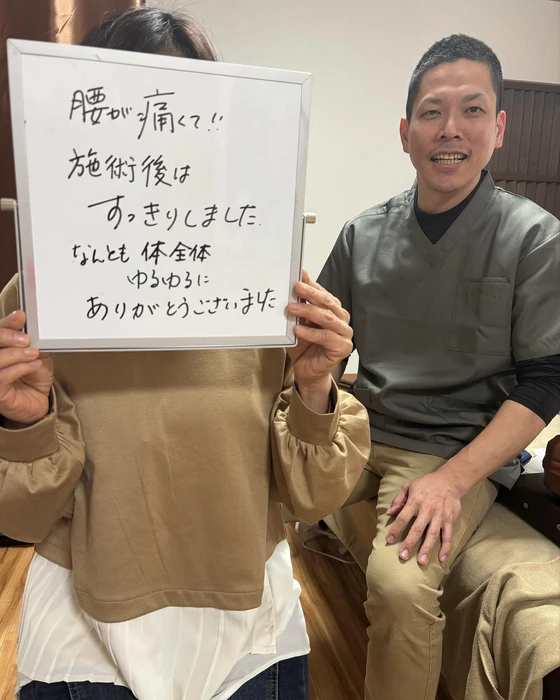 腰が痛くて!!
施術後は
すっきりしました.
なんとも 体全体
ゆるゆるに
ありがとうございました